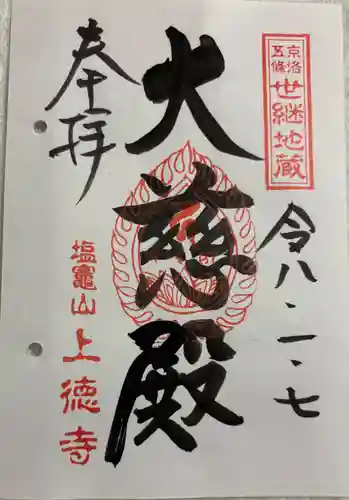 京洛
五條
世継地蔵
令八・一・七
大慈殿
奉拝
塩竈山上徳寺